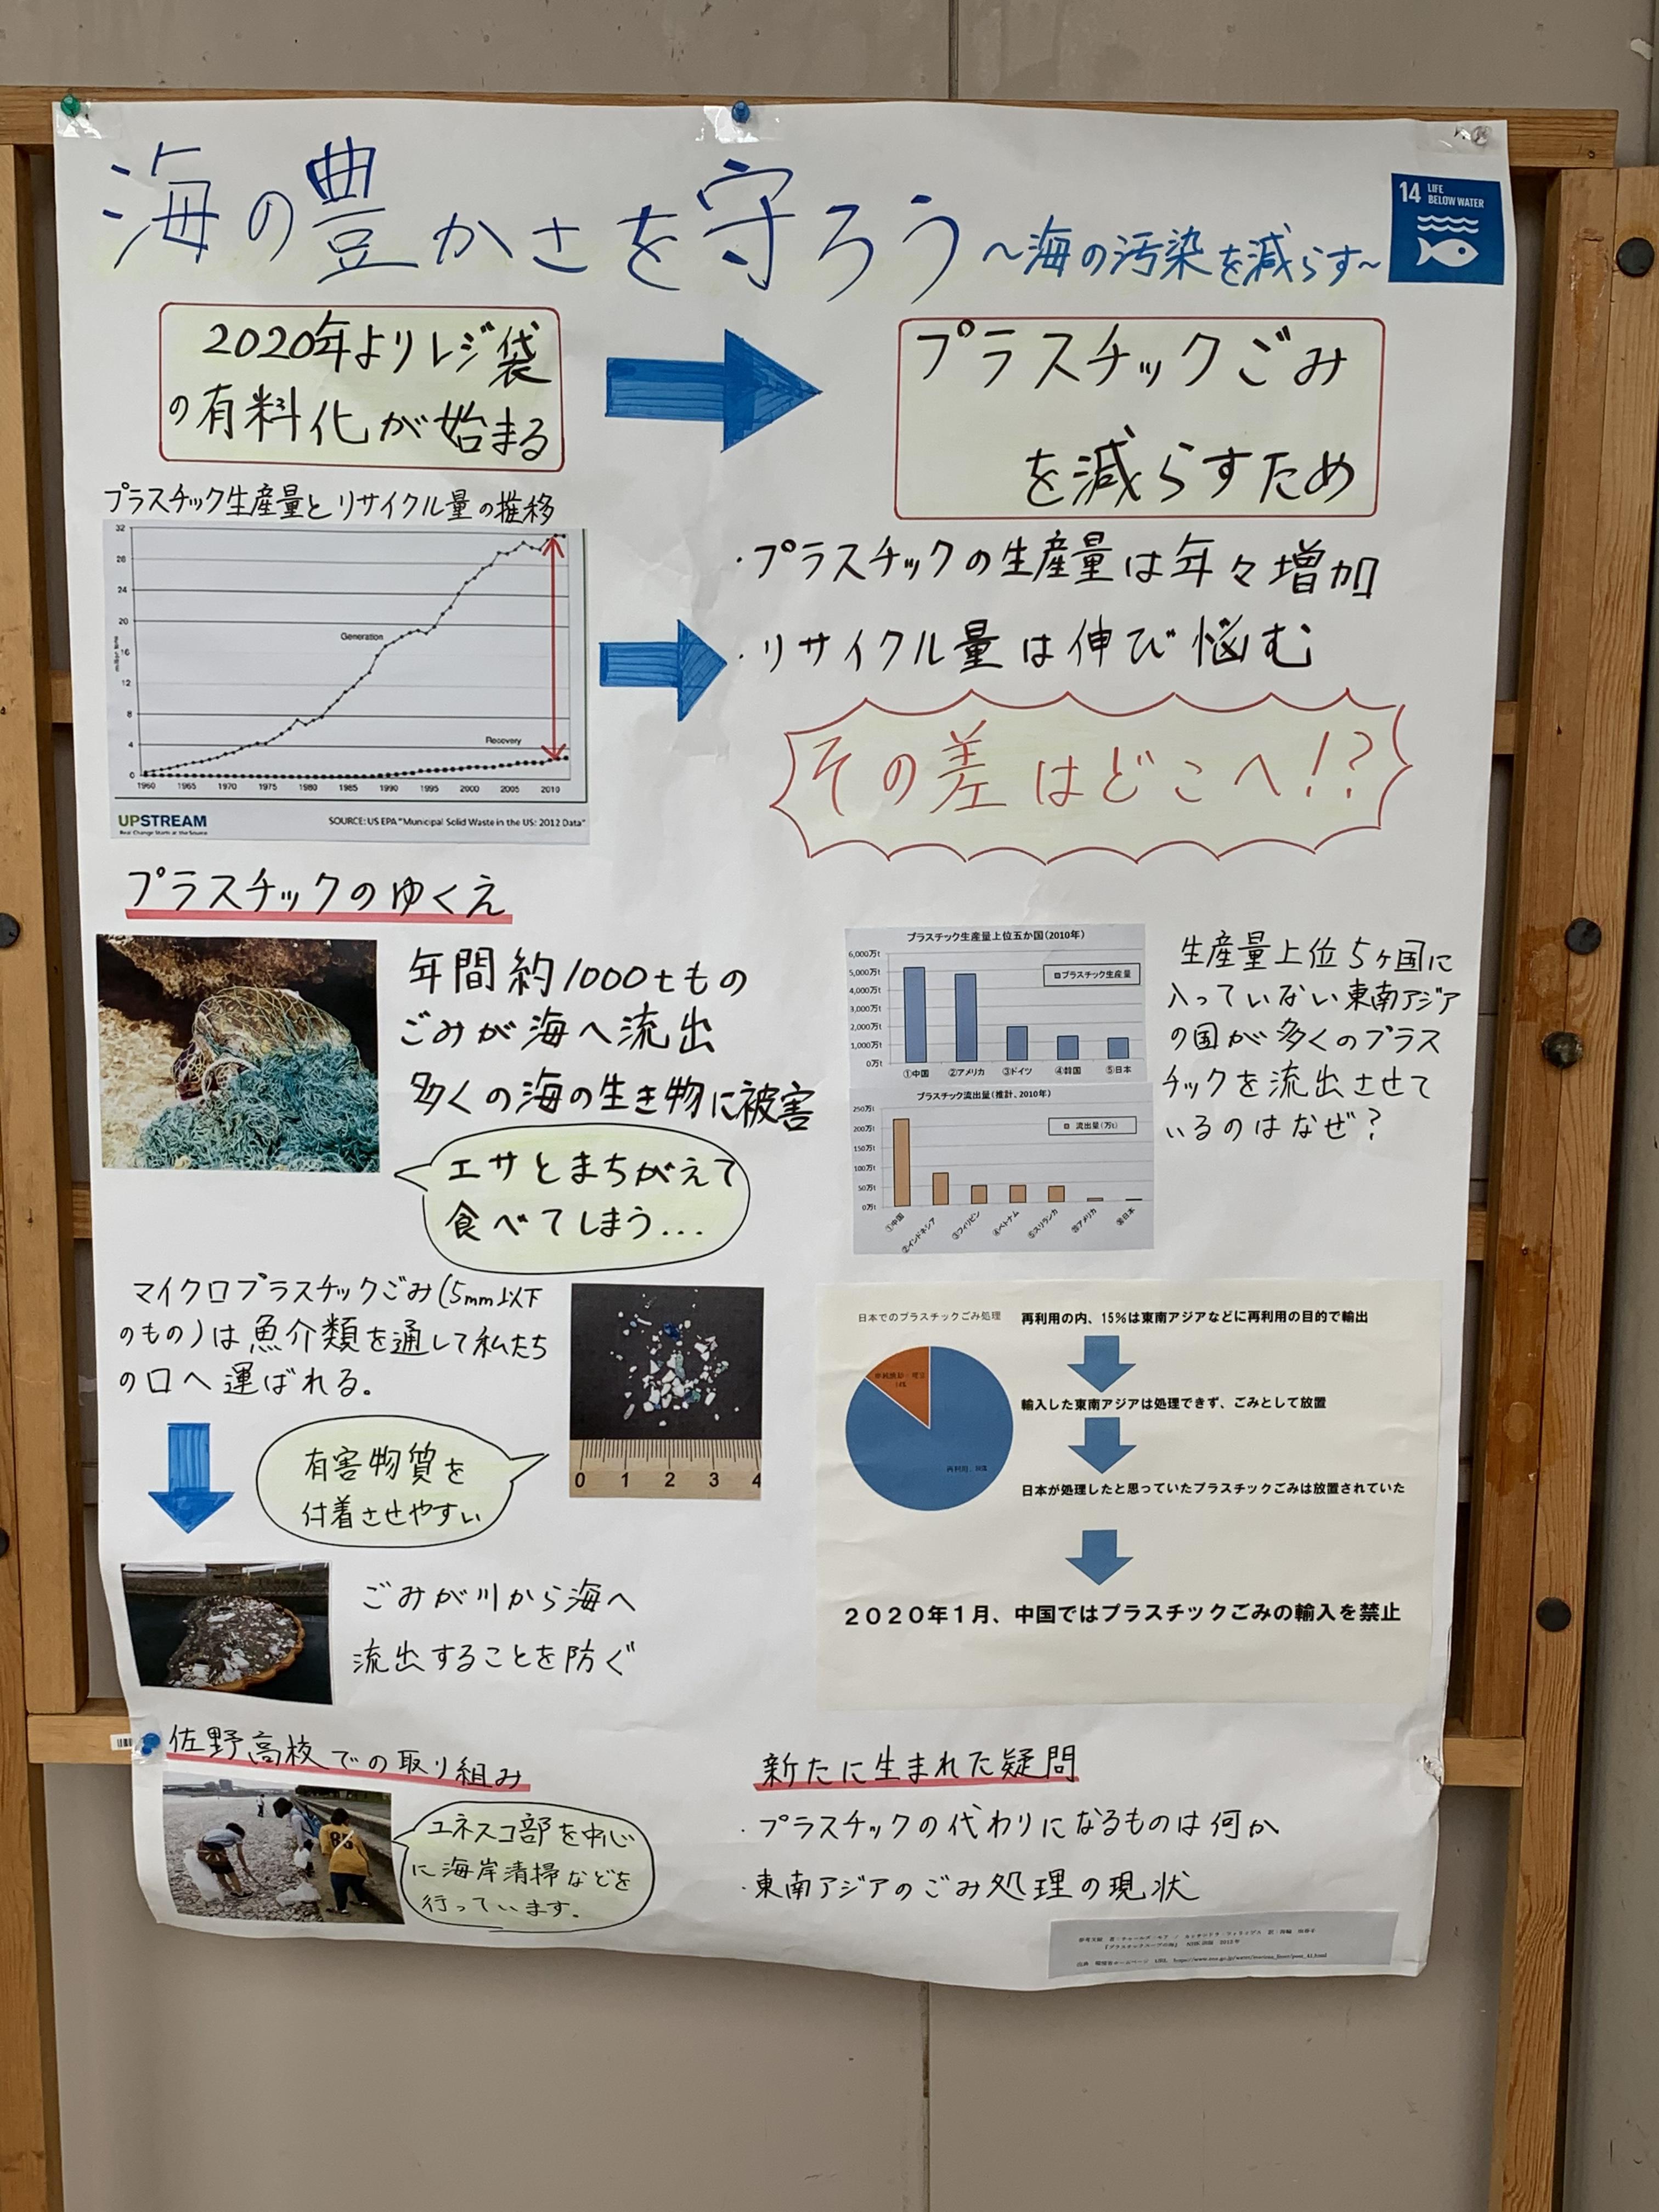 海の豊かさを守ろう ～海の汚染を減らす～
14 LIFE
BELOW WATER
2020年よりレジ袋
の有料化が始まる
プラスチックごみ
を減らすため
プラスチック生産量とリサイクル量の推移
32
28
24
20
16
12
8
4
0
Generation
Recovery
1960 1965 1970 1975 1980 1985 1990 1995 2000 2005 2010
UPSTREAM
Real Change Starts at the Source
SOURCE: US EPA "Municipal Solid Waste in the US: 2012 Data"
・プラスチックの生産量は年々増加
・リサイクル量は伸び悩む
その差はどこへ!?
プラスチックのゆくえ
年間約1000tもの
ごみが海へ流出
多くの海の生き物に被害
エサとまちがえて
食べてしまう...
マイクロプラスチックごみ(5mm以下
のもの)は魚介類を通して私たち
の口へ運ばれる。
0 1 2 3 4
有害物質を
付着させやすい
ごみが川から海へ
流出することを防ぐ
プラスチック生産量上位五か国(2010年)
6,000万t
5,000万t
4,000万t
3,000万t
2,000万t
1,000万t
0万t
プラスチック生産量
①中国 ②アメリカ ③ドイツ ④韓国 ⑤日本
プラスチック流出量(推計、2010年)
250万t
200万t
150万t
100万t
50万t
0万t
流出量(万t)
①中国 ②インドネシア ③フィリピン ④ベトナム ⑤スリランカ ⑳アメリカ ㉚日本
生産量上位5ヶ国に
入っていない東南アジア
の国が多くのプラス
チックを流出させて
いるのはなぜ?
日本でのプラスチックごみ処理
再利用の内、15%は東南アジアなどに再利用の目的で輸出
輸入した東南アジアは処理できず、ごみとして放置
日本が処理したと思っていたプラスチックごみは放置されていた
2020年1月、中国ではプラスチックごみの輸入を禁止
佐野高校での取り組み
ユネスコ部を中心
に海岸清掃などを
行っています。
新たに生まれた疑問
・プラスチックの代わりになるものは何か
・東南アジアのごみ処理の現状